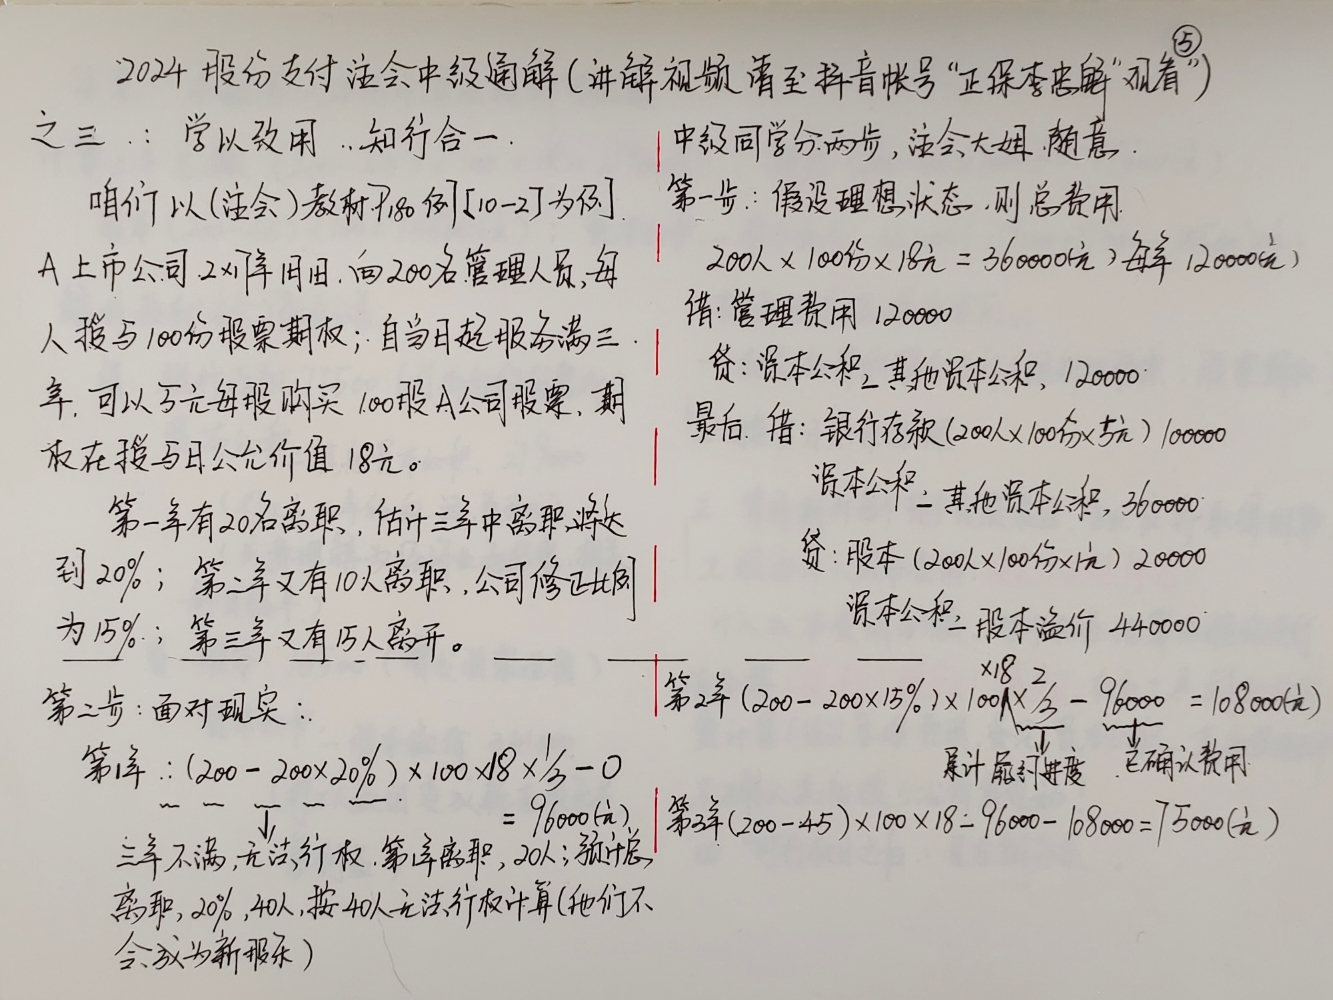 ⑤
2024 股份支付注会中级通解(讲解视频请至抖音帐号“正保李忠解”观看”)
之三：学以致用，知行合一．
咱们以(注会)教材P180例[10-2]为例]
A上市公司2X1年1月1日，向200名管理人员，每
人授与100份股票期权；自当日起服务满三
年，可以5元每股购买100股A公司股票，期
权在授与日公允价值18元。
第一年有20名离职，估计三年中离职将达
到20%；第二年又有10人离职，公司修正比例
为15%；第三年又有15人离开。
中级同学分两步，注会大姐随意．
第一步：假设理想状态，则总费用
200人×100份×18元＝360000(元)每年120000(元)
借：管理费用 120000
贷：资本公积－其他资本公积，120000
最后．借：银行存款(200人×100份×5元)100000
资本公积－其他资本公积，360000
贷：股本(200人×100份×1元) 20000
资本公积－股本溢价 440000
第二步：面对现实：
第1年：(200－200×20%)×100×18×1/3－0
＝96000(元)
三年不满，无法行权．第1年离职，20人；预计总
离职，20%，40人，按40人无法行权计算(他们不
会成为新股东)
第2年(200－200×15%)×100×18×2/3－96000＝108000(元)
累计 进度 已确认费用
第3年(200－45)×100×18－96000－108000＝75000(元)